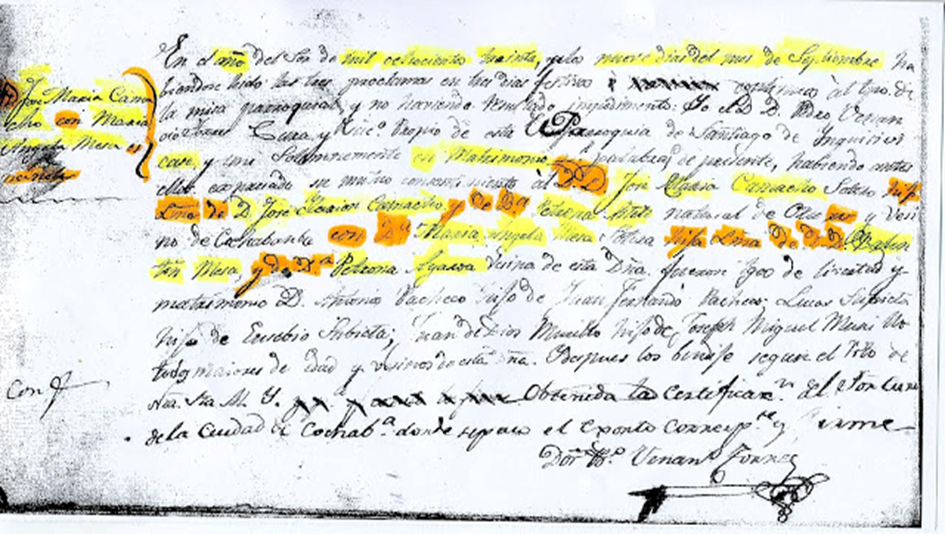 Jose Maria Cama
cho con Maria
Angela Mesa
En el año del Sor de mil ochocientos treinta, y a los nueve dias del mes de Septiembre ha
biendose leido las tres proclamas en tres dias festivos continuos al tpo. de
la misa parroquial, y no haviendo resultado impedimento: Yo el D. D. Pedro Venan
cio Torres Cura, y Propio de esta Parroquia de Santiago de
case, y uni Solemnemente en Matrimonio palabras de presente, habiendo antes
ellos expresado su mutuo consentimiento al D.D. Jose Maria Camacho Soltero hijo
Lmo de D. Jose Camacho, y de Da Petrona natural de y Vesi
no de Cochabamba con Da Maria Angela Mesa Soltera hija Lma de D. D. Balen
tin Mesa, y de Da Petrona Ayaroa Vecina de esta Dña. fueron tgos de livertad y
matrimonio D. Antonio Pacheco hijo de Juan Fernando Pacheco: Lucas
hijo de Eusebio Juan de Dios Murillo hijo de Joseph Miguel
todos maiores de edad y vesinos de esta Dña. Despues los bendije segun el Rito de
Nra. Sta. M. Y. Obtenida la Certificasn. del Sor Cura
Conf
de la Ciudad de Cochaba. donde el y firme
Dor Po. Venano. Torres